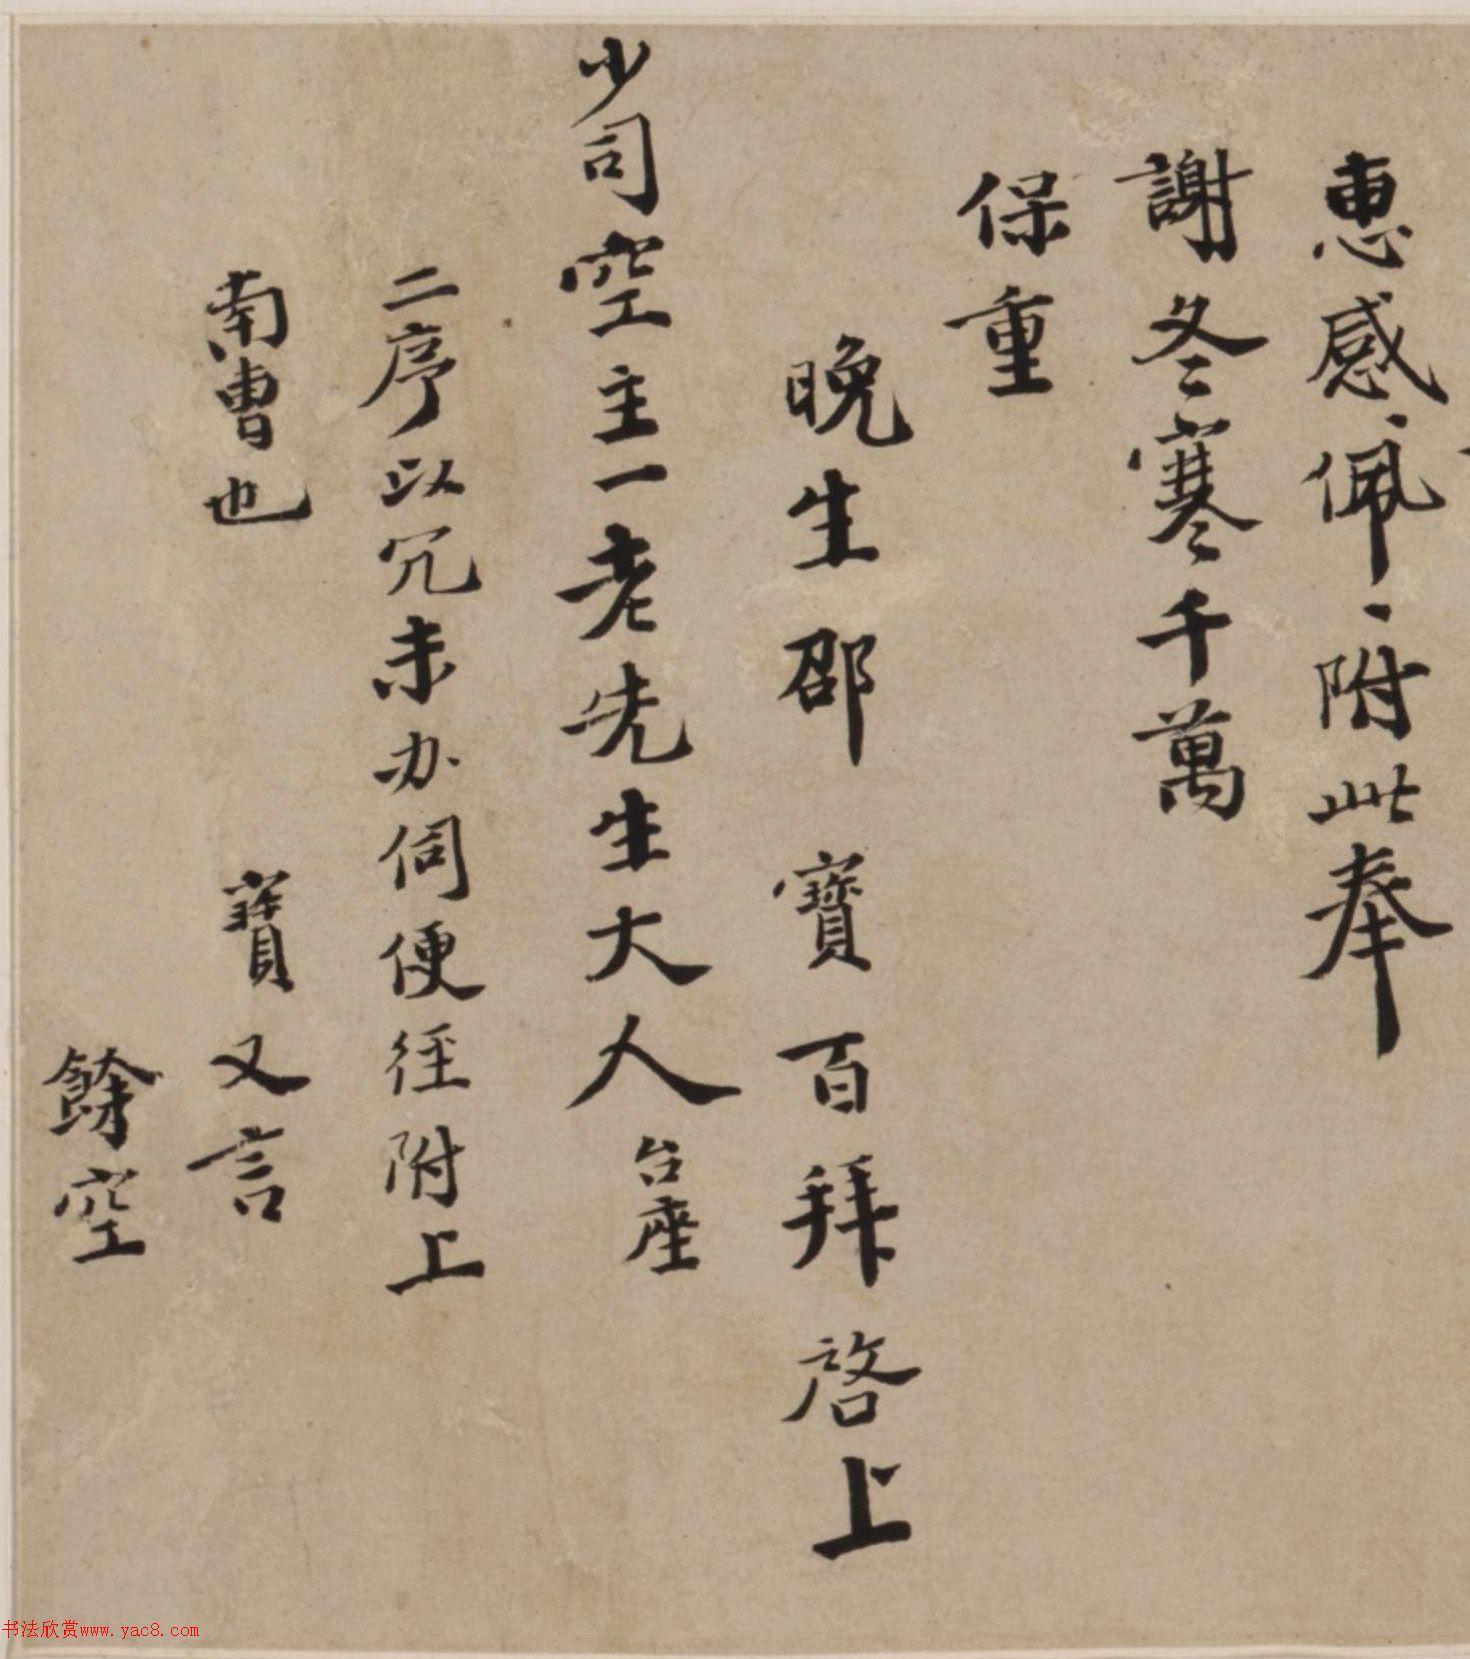 惠感感佩佩附此奉
謝冬寒千萬
保重
晚生邵寶百拜啓上
少司空主一老先生大人台座
二序以冗未办伺便徑附上
南曹也
寶又言
餘空
书法欣赏www.yac8.com